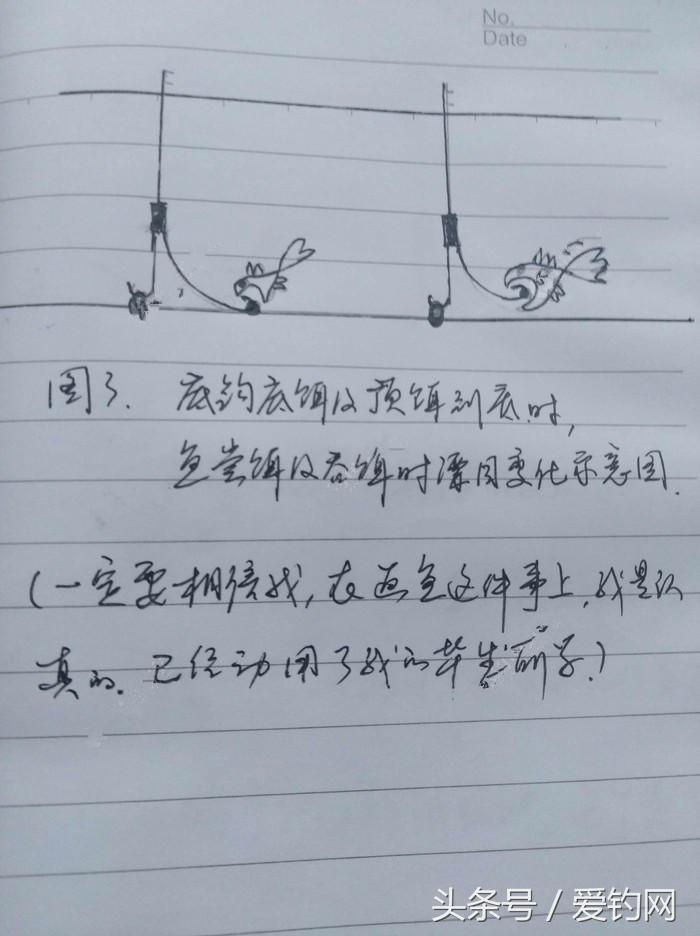 No.
Date
图3. 底钩底饵及顶饵到底时,
鱼尝饵及吞饵时漂目变化示意图.
(一定要相信我,在画鱼这件事上,我是认
真的.已经动用了我的毕生所学.)
头条号 / 爱钓网